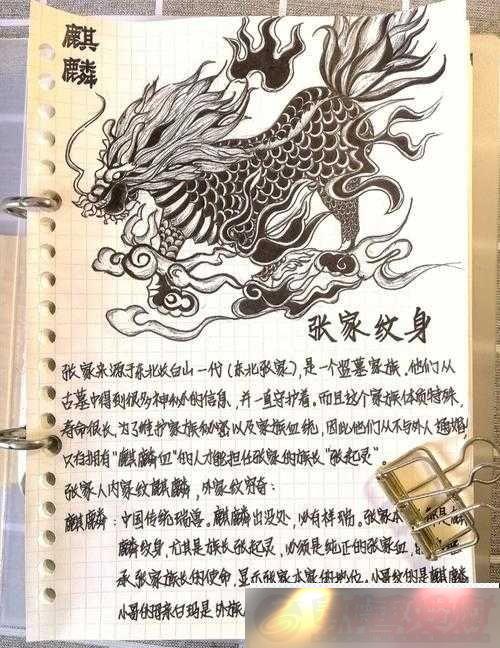 麒
麟
张家纹身
张家来源于东北长白山一代(东北张家),是一个盗墓家族,他们从
古墓中得到很多神秘的信息,并一直守护着。而且这个家族体质特殊,
寿命很长,为了维护家族秘密以及家族血统,因此他们从不与外人通婚
只有拥有"麒麟血"的人才能担任张家的族长"张起灵"。
张家人内家纹麒麟,外家纹穷奇:
麒麟:中国传统瑞兽。麒麟出没处,必有祥瑞。张家本
麟纹身,尤其是族长张起灵,必须是纯正的张家血,
承张家族长的使命,显示张家本家的地位。小哥纹的是麒麟
小哥的母亲白玛是外族